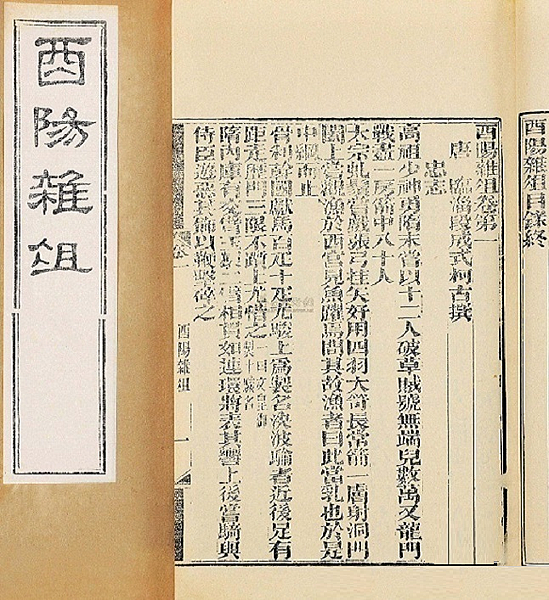 酉陽雜俎
酉陽雜俎目錄終
酉陽雜俎卷第一
唐 臨淄段成式柯古撰
忠志
高祖少神勇隋末嘗以十二人破草賊號無端兒數萬又龍門
戰盡一房箭中八十人
太宗虬鬚嘗戲張弓挂矢好用四羽大笴長常箭一膚射洞門
闔上嘗觀漁於西宮見魚躍焉問其故漁者曰此當乳也於是
中網而止
骨利幹國獻馬百疋十疋尤駿上爲製名決波騟者近後足有
距走歷門三限不躓上尤惜之
隋內庫有交臂玉猿二臂相貫如連環將表其轡上後嘗騎與
侍臣遊惡其飾以鞭擊碎之
卷一
酉陽雜俎
一